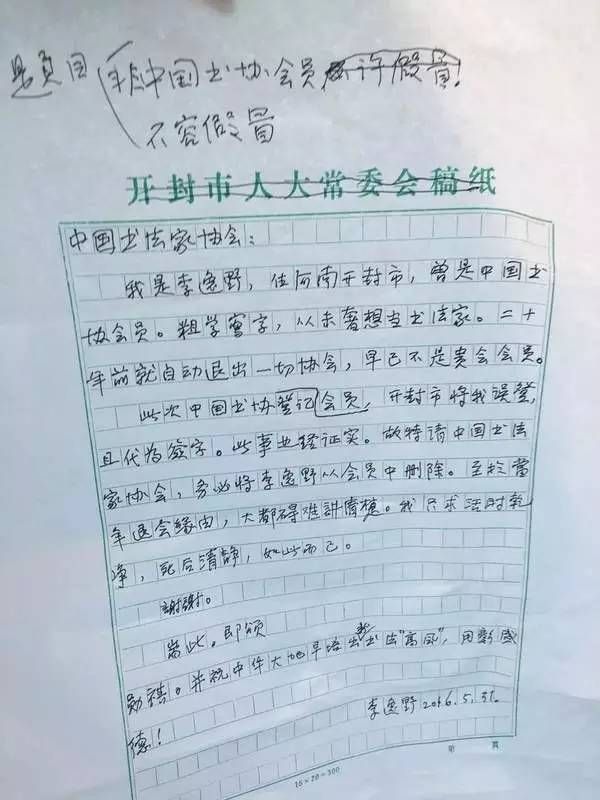 题目
非中国书协会员 许假冒！
不容假冒
开封市人大常委会稿纸
中国书法家协会：
我是李逸野，住河南开封市，曾是中国书
协会员。粗学写字，从未奢想当书法家。二十
年前就自动退出一切协会，早已不是贵会会员。
此次中国书协登记会员，开封市将我误登，
且代为签字。此事业经证实。故特请中国书法
家协会，务必将李逸野从会员中删除。至于当
年退会缘由，大都碍难讲 。我只求活时乾
净，死后清静，如此而已。
谢谢。
耑此。即颂
勋祺。并祝中华大地早 书法"高风"，用彰盛
德！
李逸野 2016.5.31.
第 页
15×20=300